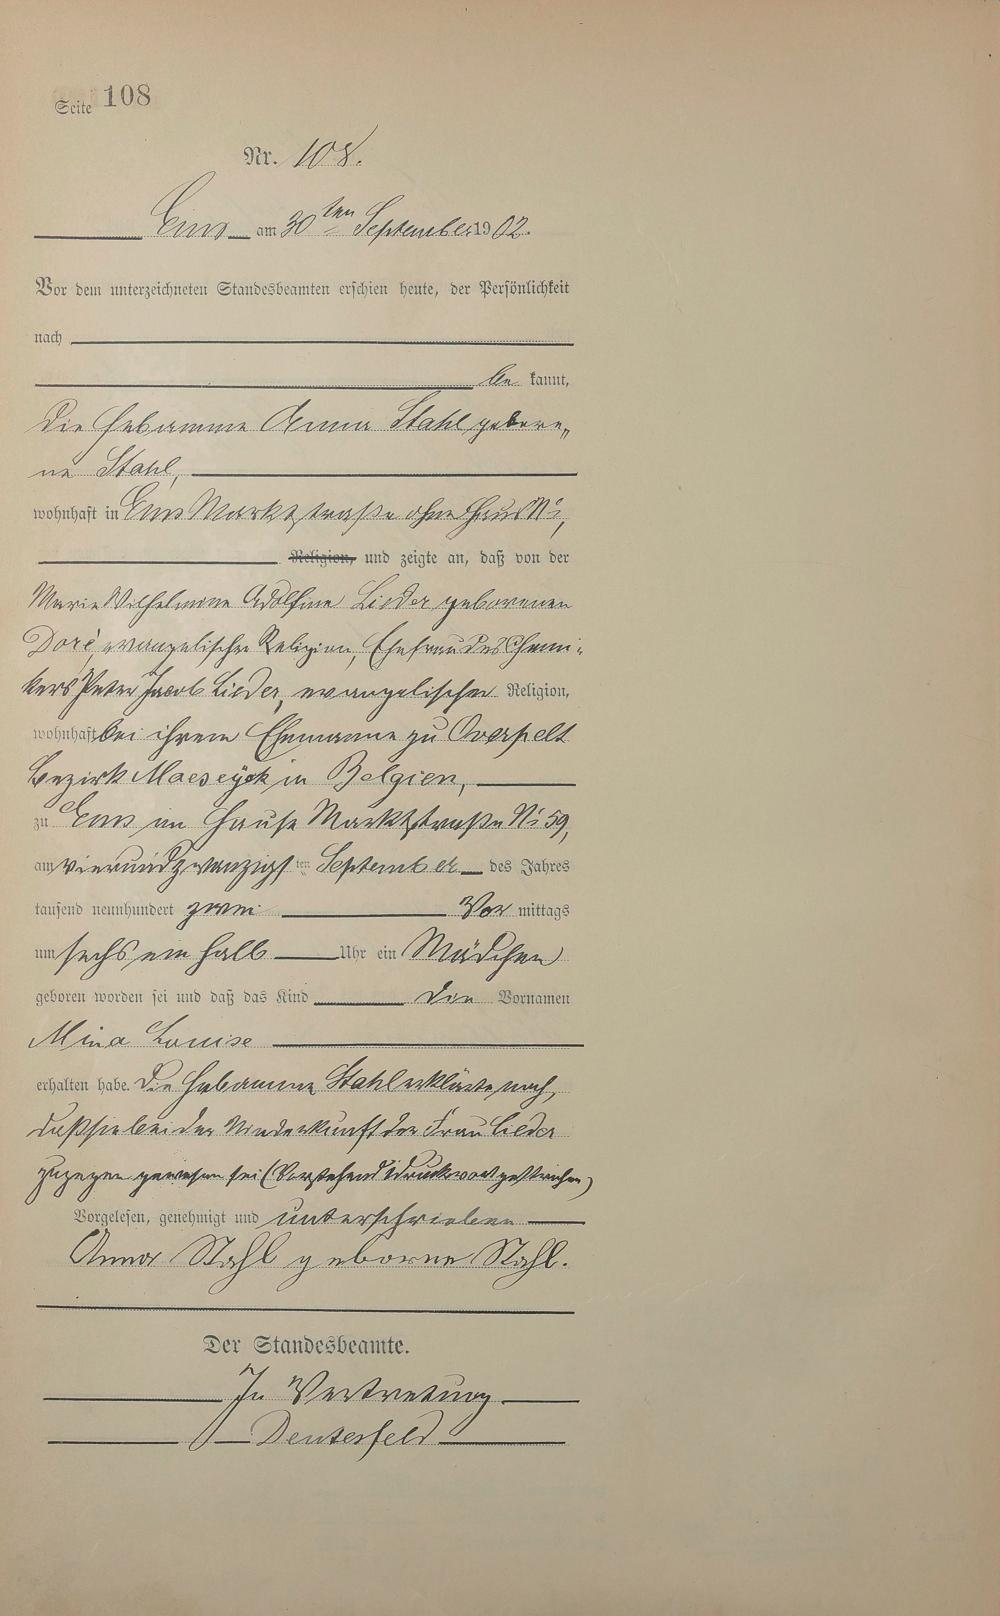 Seite 108
Nr. 108.
Ems am 30ten September 1902.
Vor dem unterzeichneten Standesbeamten erschien heute, der Persönlichkeit
nach
be kannt,
die Hebamme Anna Stahl gebore„
ne Stahl,
wohnhaft in Ems Marktstraße ohne Haus No,
Religion, und zeigte an, daß von der
Marie Wilhelmine Adolfine Lieder geborenen
Doré, evangelischer Religion, Ehefrau des Chemi-
kers Peter Jacob Lieder, evangelischer Religion,
wohnhaft bei ihrem Ehemanne zu Overpelt
Bezirk Maeseyck in Belgien,
zu Ems im Hause Marktstraße No 59,
am vierundzwanzigsten September des Jahres
tausend neunhundert zwei Vor mittags
um sechs ein halb Uhr ein Mädchen
geboren worden sei und daß das Kind die Vornamen
Mina Louise
erhalten habe. Die Hebamme Stahl erklärte noch,
daß sie bei der Niederkunft der Frau Lieder
zugegen gewesen sei (Vorstehend 1 Druckwort gestrichen)
Vorgelesen, genehmigt und unterschrieben
Anna Stahl geborne Stahl.
Der Standesbeamte.
In Vertretung
Deusterfeld